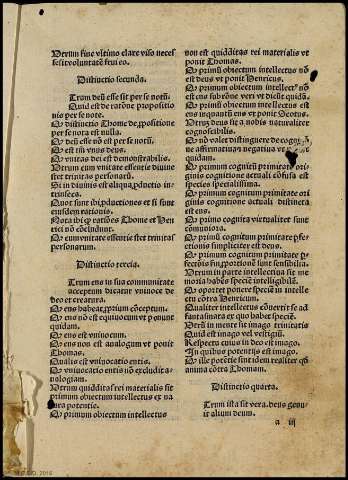 Utrum fine vltimo clare viso neces
se sit voluntatẽ frui eo.
Distinctio secunda.
Utrum deũ esse sit per se notũ.
Quid est de ratiõne propositio
nis per se note.
Q̃ distinctio Thome de ꝓpositione
per se nota est nulla.
Q̃ deũ esse nõ est per se notũ.
Q̃ est tm̃ vnus deus.
Q̃ vnitas dei est demonstrabilis.
Utrum cum vnitate essentie diuine
stet trinitas personarũ.
Si in diuinis est aliqua ꝓductio in-
trinseca.
Quot sunt ibi ꝓductiones et si sunt
eiusdem rationis.
Nota ibi ꝙ ratiões Thome et Hen
rici nõ cõcludunt.
Q̃ cum vnitate essentie stet trinitas
personarum.
Distinctio tercia.
Utrum ens in sua communitate
acceptum dicatur vniuoce de
deo et creatura.
Q̃ ens habeat ꝓprium cõceptum.
Q̃ ens nõ est equiuocum vt ponunt
quidam.
Q̃ ens est vniuocum.
Q̃ ens non est analogum vt ponit
Thomas.
Qualis est vniuocatio entis.
Q̃ vniuocatio entis nõ excludit a-
nalogiam.
Utrum quidditas rei materialis sit
primum obiectum intellectus ex na
tura potentie.
Q̃ primum obiectum intellectus
non est quidditas rei materialis vt
ponit Thomas.
Q̃ primũ obiectum intellectus nõ
est deus vt ponit Henricus.
Q̃ primum obiectum intellectꝰ nõ
est ens sub rõne veri vt dicũt quidã.
Q̃ primũ obiectum intellectus est
ens inquantũ ens vt ponit Scotus.
Utrum deus sit a nobis naturaliter
cognoscibilis.
Q̃ nõ valet distinguere de
affirmatiua negatiua vt
quidam.
Q̃ primum cognitũ primitate ori
ginis cognitione actuali cõfusa est
species specialissima.
Q̃ primum cognitum primitate ori
ginis cognitione actuali distincta
est ens.
Q̃ primo cognita virtualiter sunt
communiora.
Q̃ primũ cognitum primitate ꝑfe-
ctionis simpliciter est deus.
Q̃ primum cognitum primitate ꝑ
fectiõis sm̃ ꝓportionẽ sunt sensibilia.
Utrum in parte intellectiua sit me
moria habẽs speciẽ intelligibilẽ.
Q̃ oportet ponere speciẽ in intelle
ctu cõtra Henricum.
Qualiter intellectus cõuertit se ad
fantasmata et quo habet speciẽ.
Utrũ in mente sit imago trinitatis
Quid est imago vel vestigiũ.
Respectu cuius in deo est imago.
In quibus potentijs est imago.
Q̃ ille potẽtie sunt idem realiter cũ
anima cõtra Thomam.
Distinctio quarta.
Utrum ista sit vera. deus genu
it alium deum.
a iij